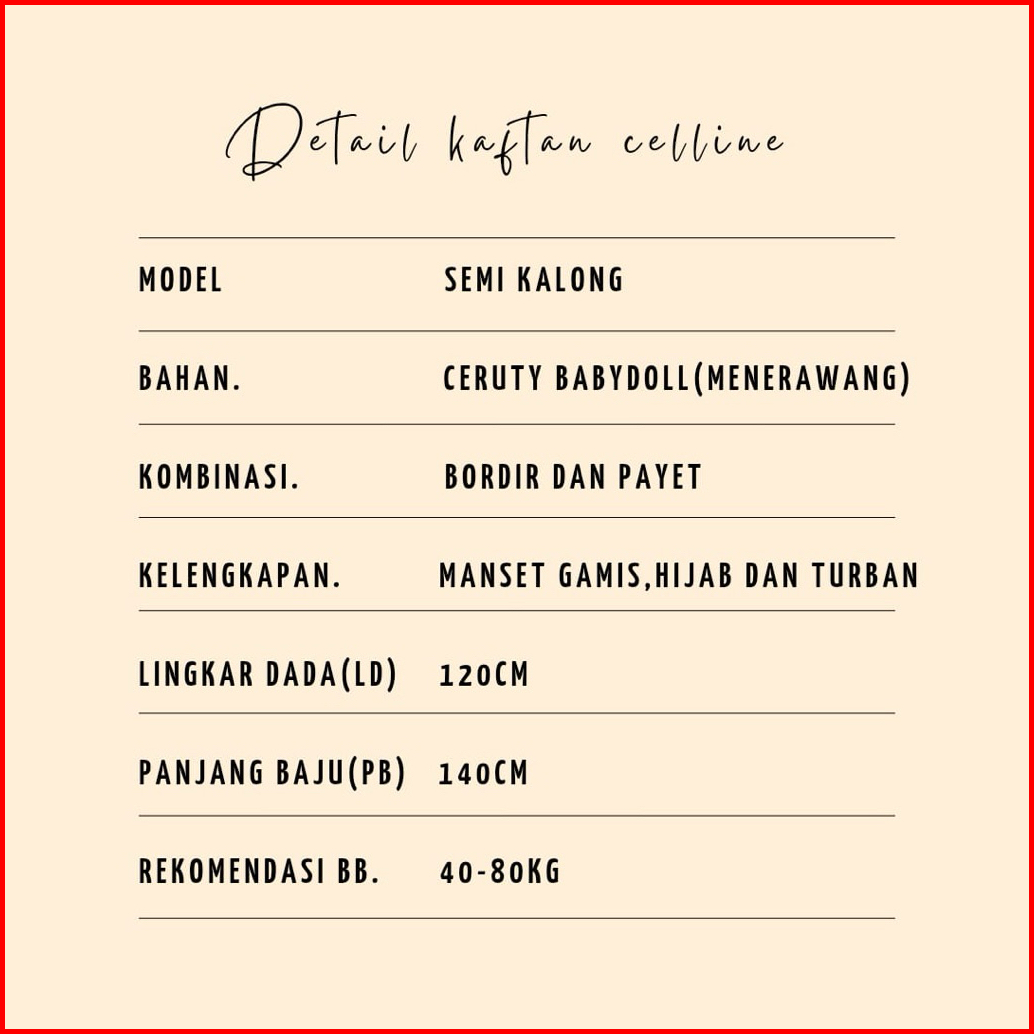 Detail kaftan celline
MODEL SEMI KALONG
BAHAN. CERUTY BABYDOLL(MENERAWANG)
KOMBINASI. BORDIR DAN PAYET
KELENGKAPAN. MANSET GAMIS,HIJAB DAN TURBAN
LINGKAR DADA(LD) 120CM
PANJANG BAJU(PB) 140CM
REKOMENDASI BB. 40-80KG